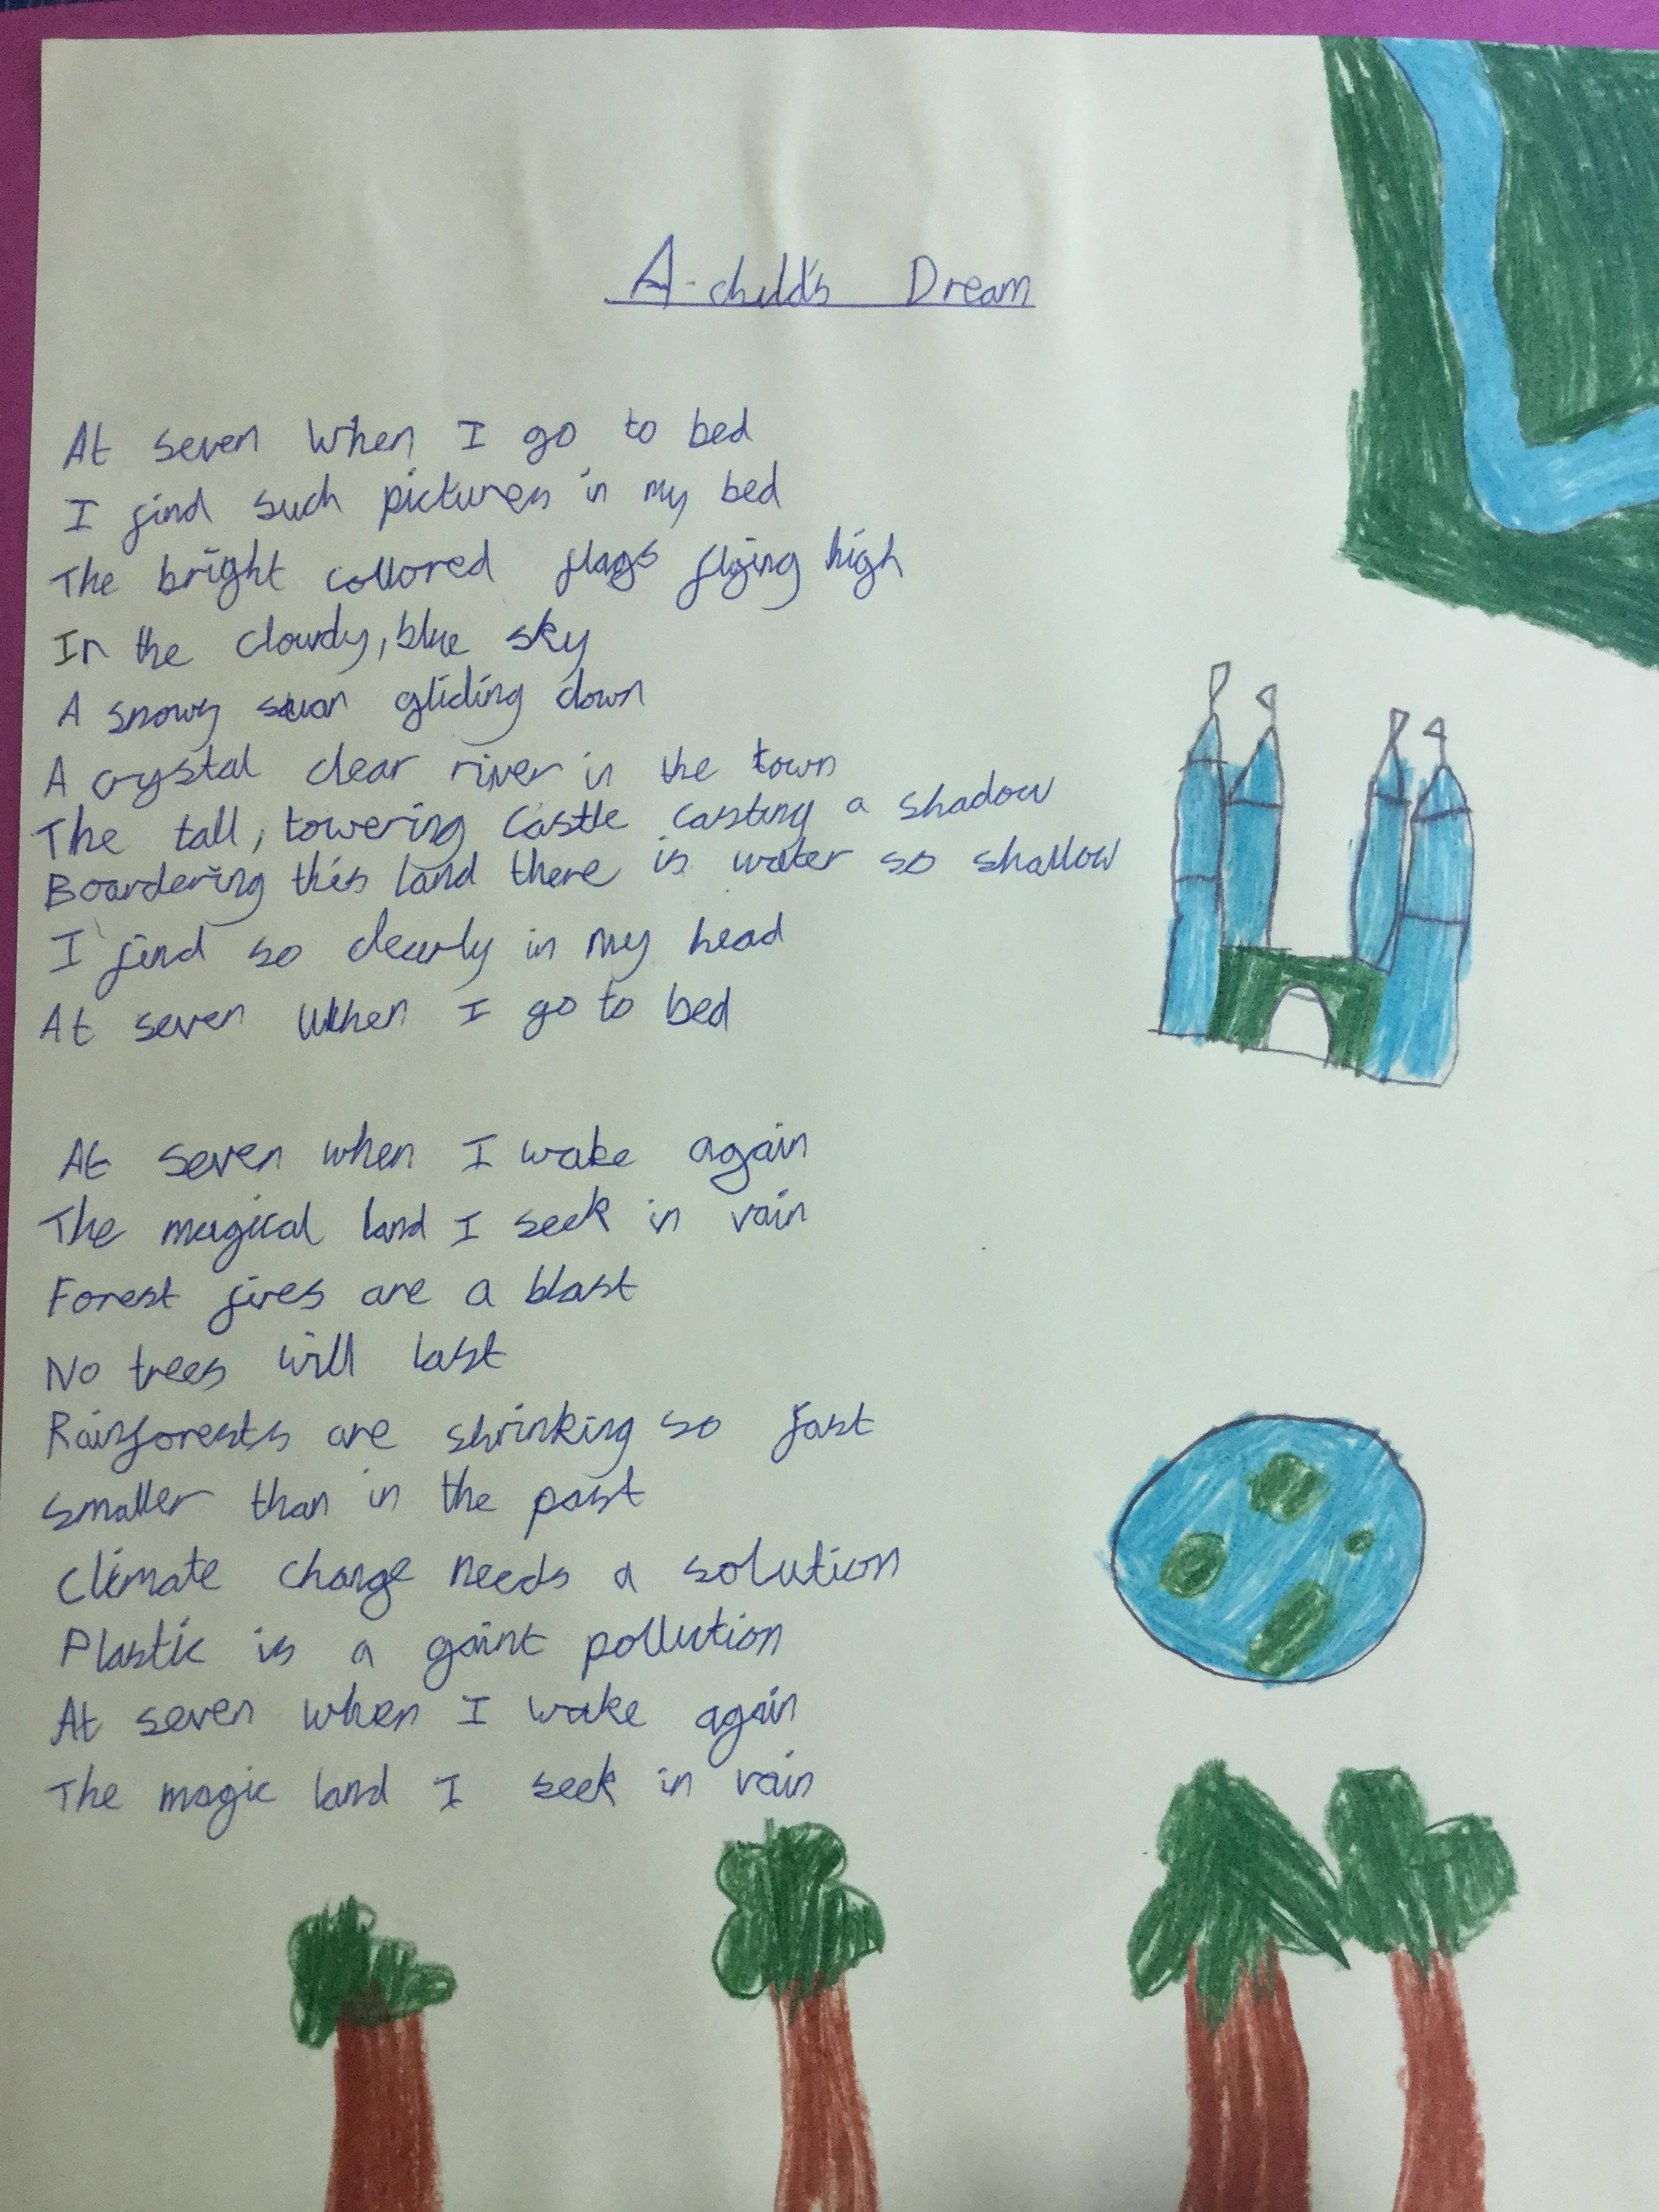 A child's Dream
At seven when I go to bed
I find such pictures in my bed
The bright collored flags flying high
In the cloudy, blue sky
A snowy swan gliding down
A crystal clear river in the town
The tall, towering castle casting a shadow
Boardering this land there is water so shallow
I find so clearly in my head
At seven when I go to bed
At seven when I wake again
The magical land I seek in vain
Forest fires are a blast
No trees will last
Rainforests are shrinking so fast
smaller than in the past
climate change needs a solution
Plastic is a gaint pollution
At seven when I wake again
The magic land I seek in vain